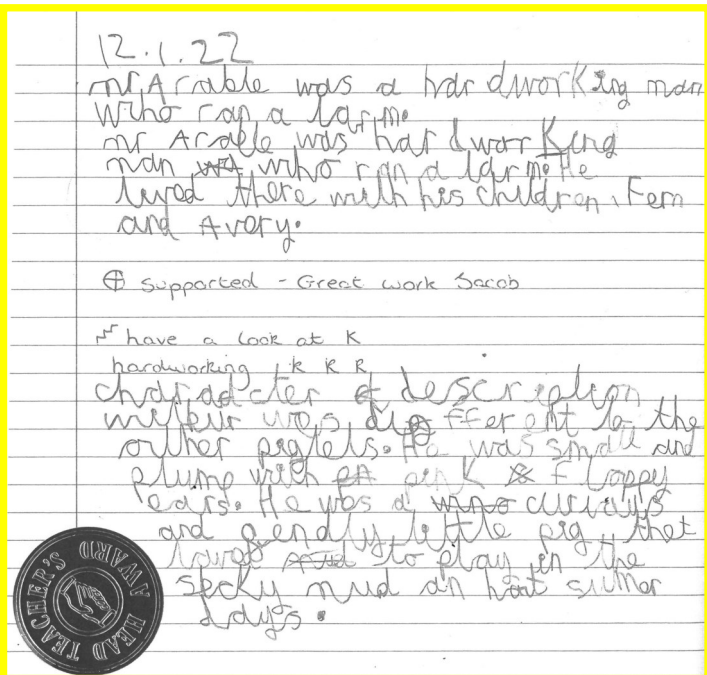 12.1.22
mr Arable was a hardworking man
who ran a farm.
mr Arable was hardworking
man who ran a farm. He
lived there with his children, Fern
and Avery.
⊕ Supported - Great work Jacob
have a look at k
hardworking k k k
character description
wilbur was different to the
outher piglets. He was small and
plump with pink floppy
ears. He was a curiays
and gendly little pig thet
loved to play in the
secky mud an hot sumer
days.
HEAD TEACHER'S AWARD